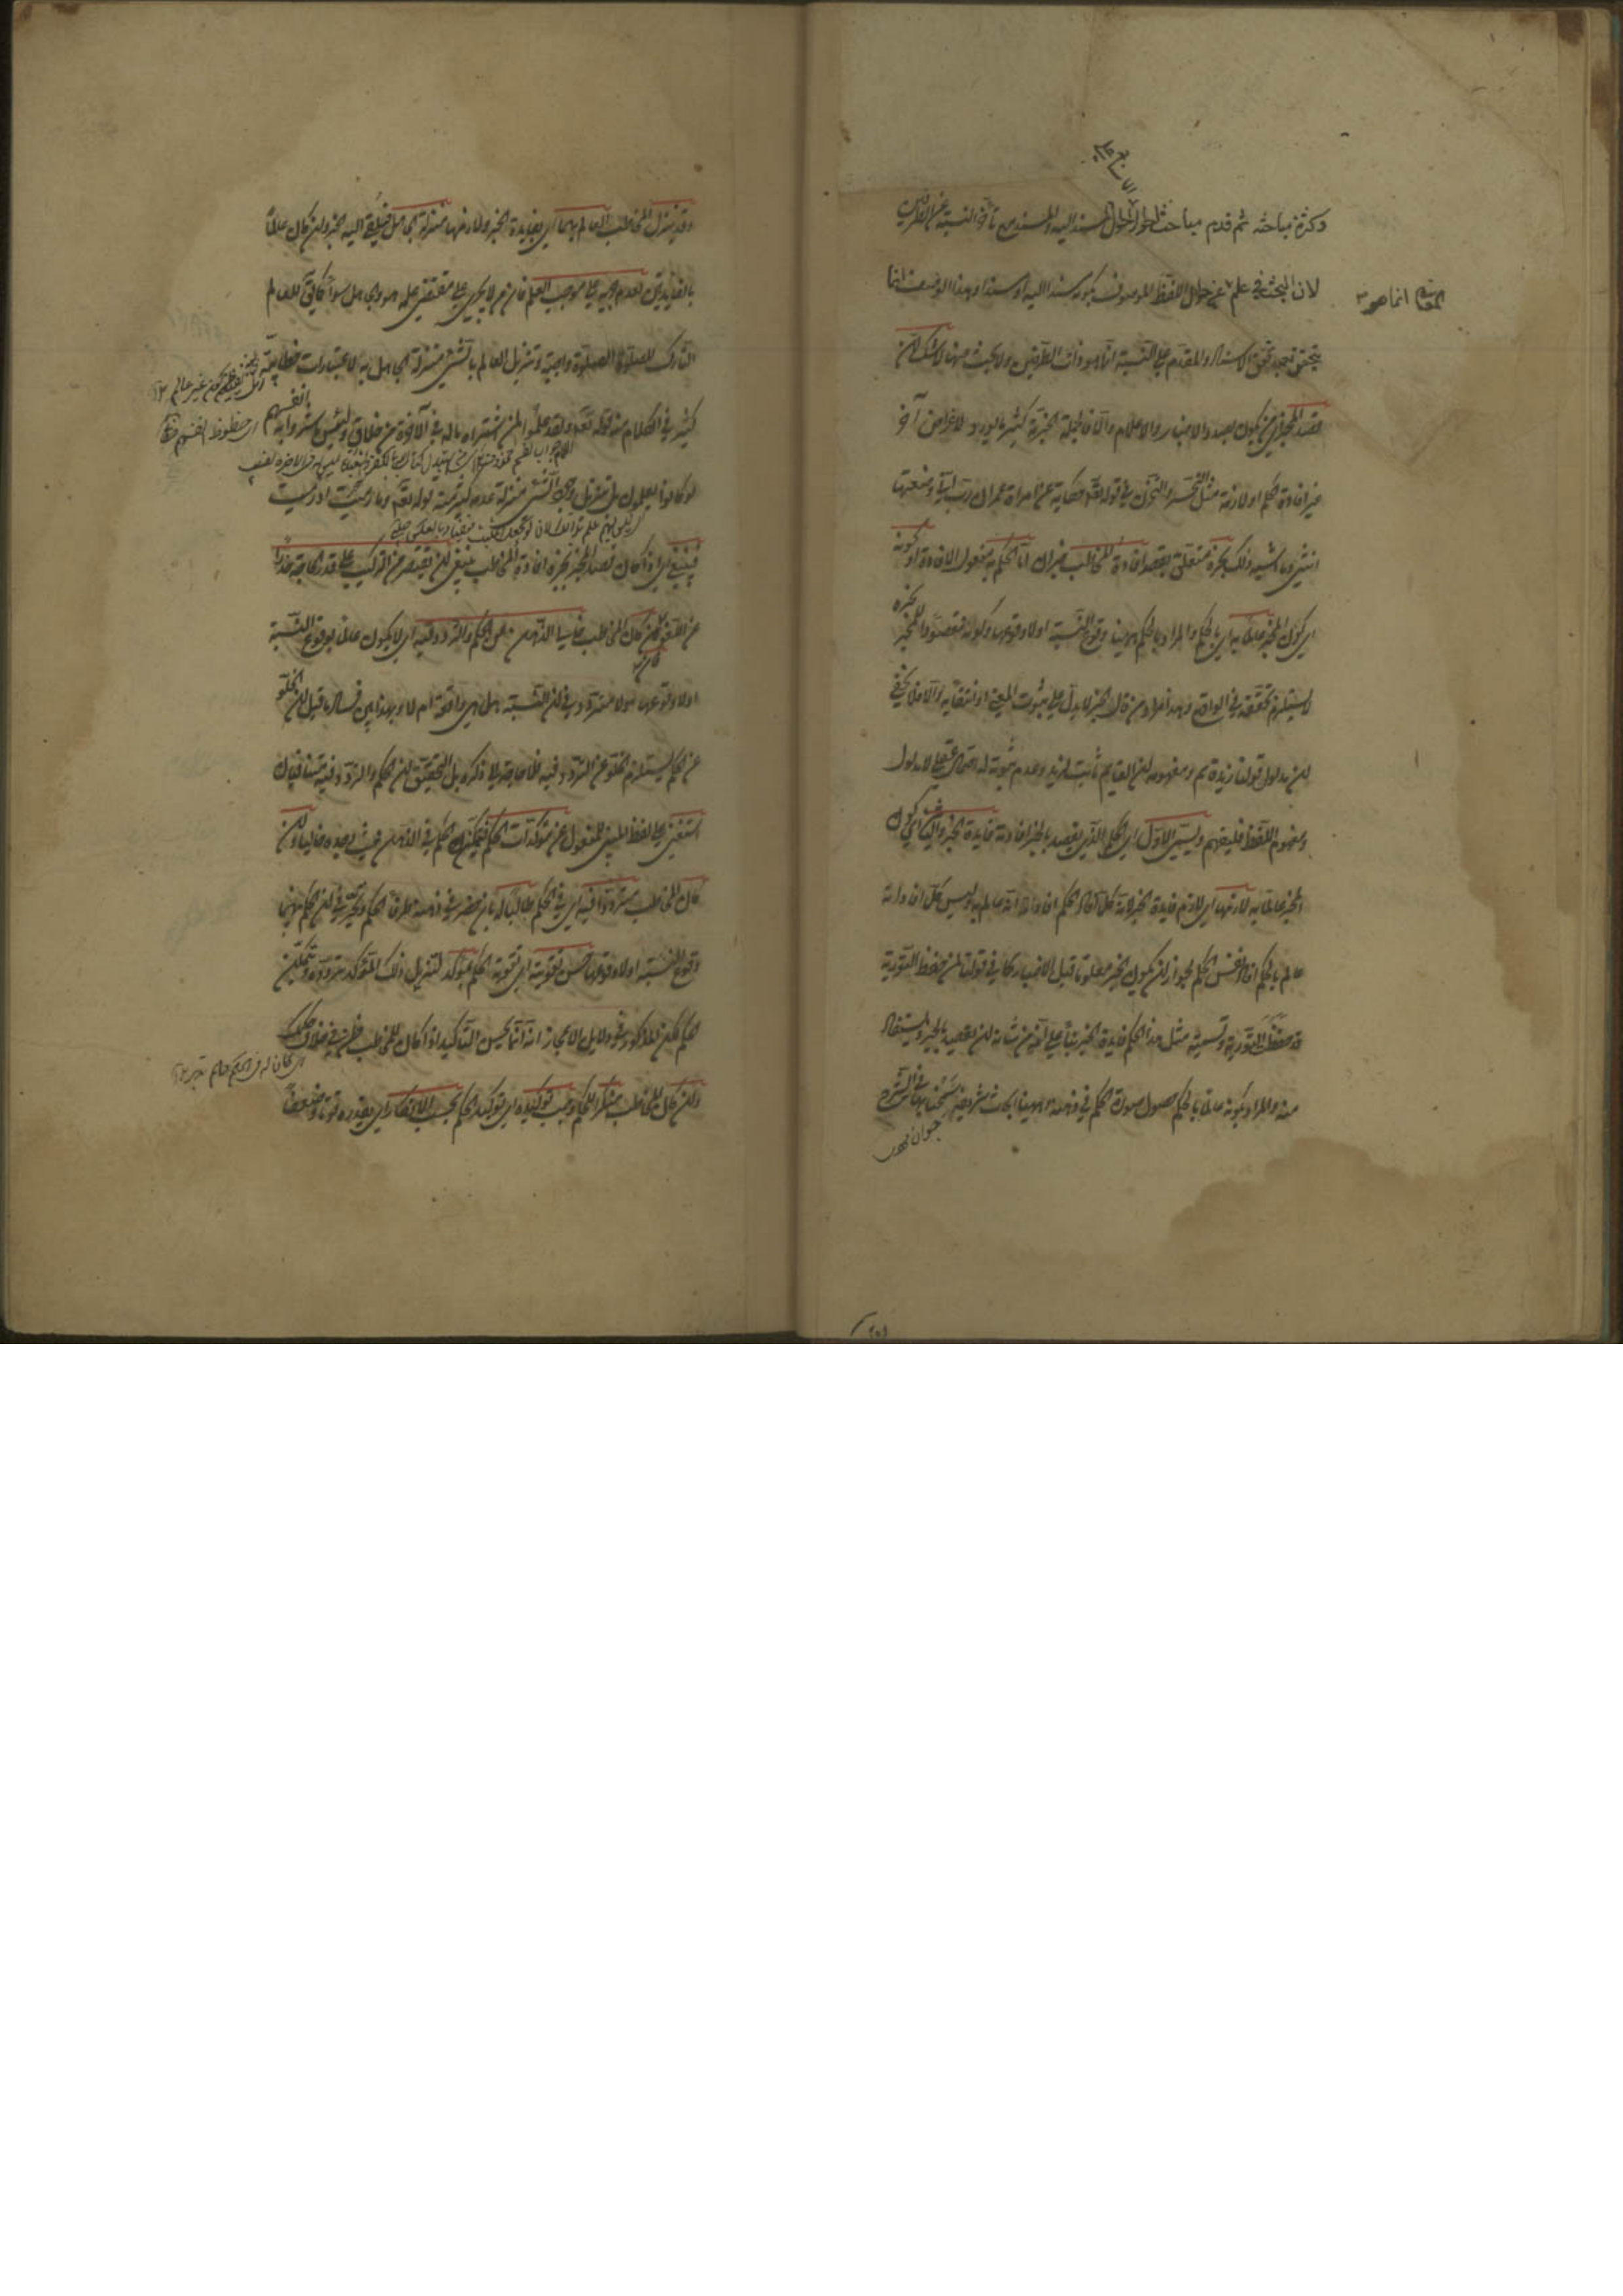 وكثرة مباحثه ثم قدم مباحث احوال المسند اليه والمسند مع تأخر النسبة عن الطرفين
لان البحث في علم المعاني انما هو
عن احوال اللفظ الموصوف بكونه مسندا اليه او مسندا وهذا الوصف انما
يتحقق بعد تحقق الاسناد والمقدم على النسبة انما هو ذات الطرفين ولا بحث عنها لا شك ان
قصد المخبر اي من يكون بصدد الاخبار والاعلام والا فالجملة الخبرية كثيرا ما تورد لاغراض آخر
غير افادة الحكم او لازمه مثل التحسر والتحزن في قوله تعالى حكاية عن امرأة عمران رب اني وضعتها
انثى وما اشبه ذلك بخبره متعلق بقصد افادة المخاطب خبر ان اما الحكم مفعول الافادة او كونه
اي كون المخبر عالما به اي بالحكم والمراد بالحكم ههنا وقوع النسبة او لا وقوعها وكونه مقصودا للمخبر بخبره
لا يستلزم تحققه في الواقع وهذا مراد من قال الخبر لا يدل على ثبوت المعنى او انتفائه والا فلا يخفى
ان مدلول قولنا زيد قائم ومفهومه ان القيام ثابت لزيد وعدم ثبوته له احتمال عقلي لا مدلول
ومفهوم اللفظ فليفهم ويسمى الاول اي الحكم الذي يقصد بالخبر افادته فائدة الخبر والثاني اي كون
المخبر عالما به لازمها اي لازم فائدة الخبر لانه كلما افاد الحكم افاد انه عالم به وليس كلما افاد انه
عالم بالحكم افاد نفس الحكم لجواز ان يكون الخبر معلوما قبل الاخبار كما في قولنا لمن حفظ التورية
قد حفظت التورية وتسمية مثل هذا الحكم فائدة الخبر بناء على انه من شانه ان يقصد بالخبر ويستفاد
منه والمراد بكونه عالما بالحكم حصول صورة الحكم في ذهنه وههنا ابحاث شريفة سمحنا بها في الشرح
وقد ينزل المخاطب العالم بهما اي بفائدة الخبر ولازمها منزلة الجاهل فيلقى اليه الخبر وان كان عالما
بالفائدتين لعدم جريه على موجب العلم فان من لا يجري على مقتضى علمه هو والجاهل سواء كما يقال للعالم
التارك للصلوة الصلوة واجبة وتنزيل العالم بالشيء منزلة الجاهل به لاعتبارات خطابية
كثير في الكلام منه قوله تعالى ولقد علموا لمن اشتراه ما له في الآخرة من خلاق ولبئس ما شروا به انفسهم
لو كانوا يعلمون بل تنزيل وجود الشيء منزلة عدمه كثير منه قوله تعالى وما رميت اذ رميت
فينبغي اي اذا كان قصد المخبر بخبره افادة المخاطب ينبغي ان يقتصر من التركيب على قدر الحاجة حذرا
عن اللغو فان كان المخاطب خالي الذهن من الحكم والتردد فيه اي لا يكون عالما بوقوع النسبة
او لا وقوعها ولا مترددا في ان النسبة هل هي واقعة ام لا وبهذا يبين فساد ما قيل ان الخلو
عن الحكم يستلزم الخلو عن التردد فيه فلا حاجة الى ذكره بل التحقيق ان الحكم والتردد فيه متنافيان
استغني على لفظ المبني للمفعول عن مؤكدات الحكم لتمكن الحكم في الذهن حيث وجده خاليا وان
كان المخاطب مترددا فيه اي في الحكم طالبا له بان حضر في ذهنه طرفا الحكم وتحير في ان الحكم بينهما
وقوع النسبة او لا وقوعها حسن تقويته اي تقوية الحكم بمؤكد لتنزيل ذلك المؤكد تردده ويتمكن
الحكم لكن المذكور في دلايل الاعجاز انه انما يحسن التأكيد اذا كان للمخاطب ظن في خلاف حكمك
وان كان المخاطب منكرا للحكم وجب توكيده اي توكيد الحكم بحسب الانكار اي بقدره قوة وضعفا